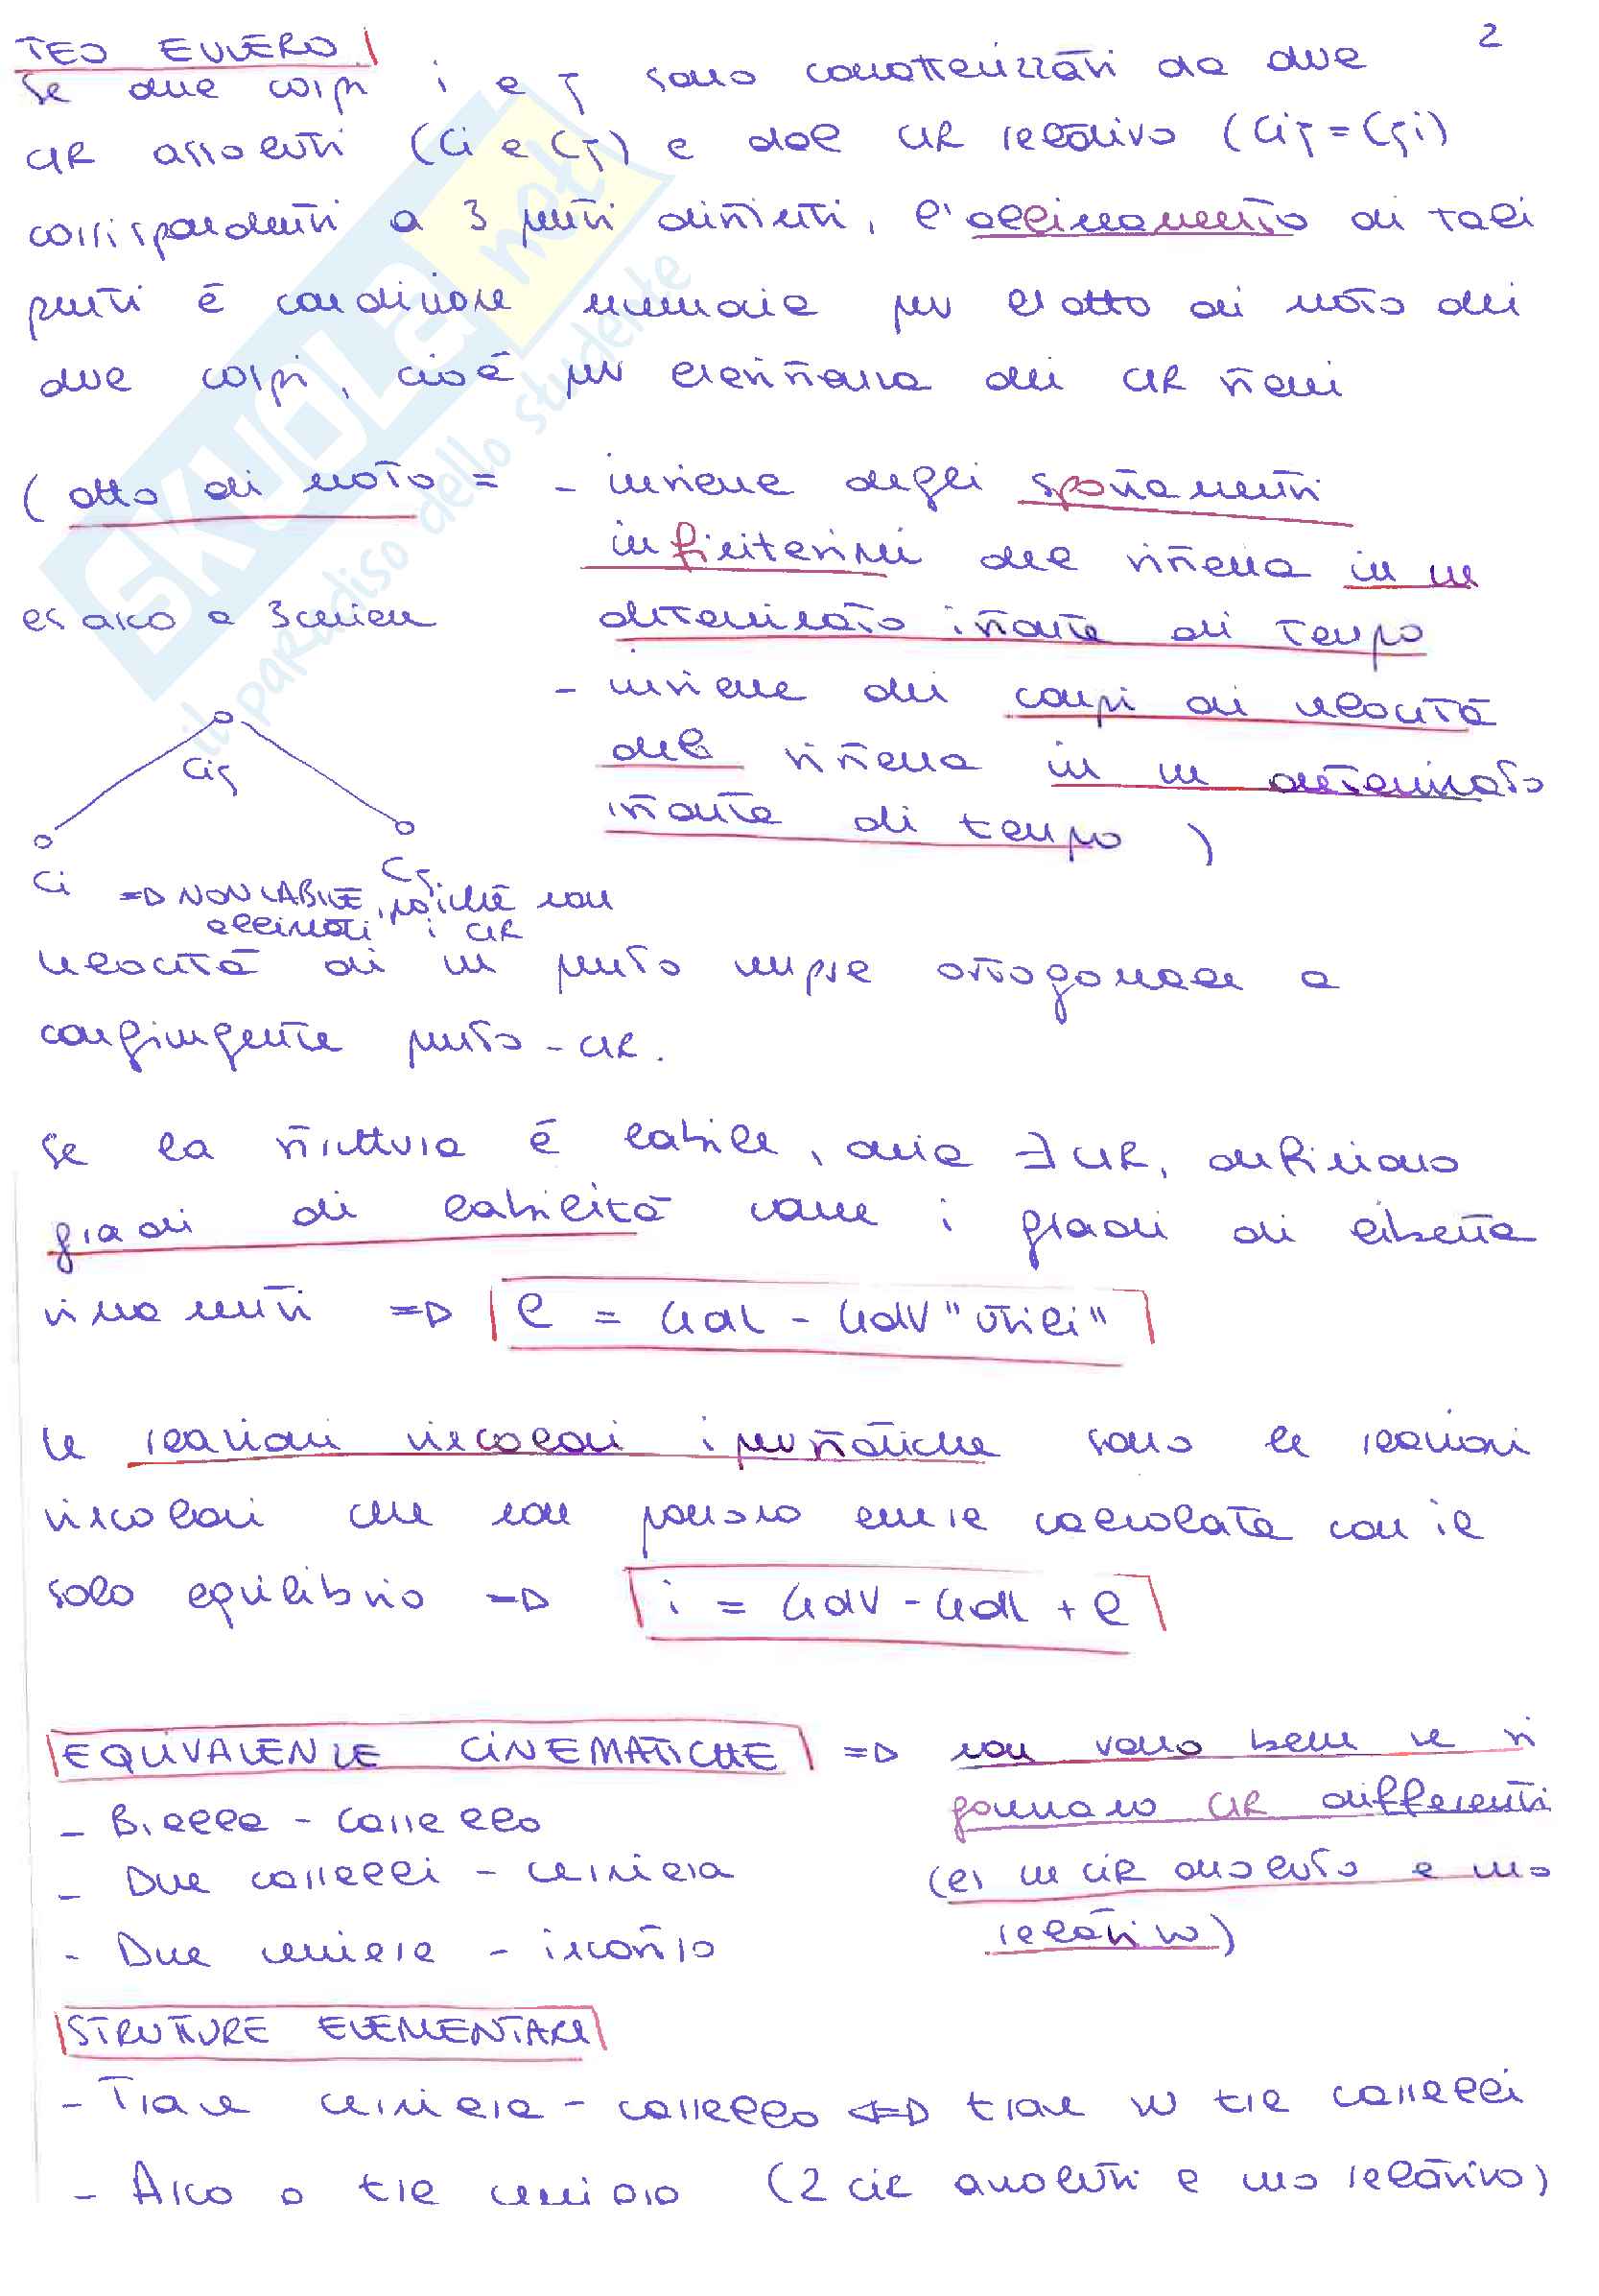 2
TEO EULERO
Se due corpi i e j sono caratterizzati da due
CIR assoluti (Ci e Cj) e dal CIR relativo (Cij = Cji)
corrispondenti a 3 punti distinti, l'allineamento di tali
punti è condizione necessaria per l'atto di moto dei
due corpi, cioè per l'esistenza dei CIR stessi
(atto di moto = - insieme degli spostamenti
infinitesimi del sistema in un
determinato istante di tempo
- insieme dei campi di velocità
del sistema in un determinato
istante di tempo )
es arco a 3 cerniere
Cij
Ci
Cj
=> NON LABILE, poiché non
allineati i CIR
Velocità di un punto sempre ortogonale a
congiungente punto - CIR.
Se la struttura è labile, cioè ∃ CIR, definiamo
gradi di labilità come i gradi di libertà
rimanenti => l = GdL - GdV "utili"
Le reazioni vincolari iperstatiche sono le reazioni
vincolari che non possono essere calcolate con il
solo equilibrio => i = GdV - GdL + l
EQUIVALENZE CINEMATICHE => non vanno bene se si
formano CIR differenti
(es un CIR assoluto e uno
relativo)
- Biella - carrello
- Due carrelli - cerniera
- Due cerniere - incastro
STRUTTURE ELEMENTARI
- Trave cerniera - carrello <=> trave su tre carrelli
- Arco a tre cerniere (2 CIR assoluti e uno relativo)
SKUOLA.net
il paradiso dello studente